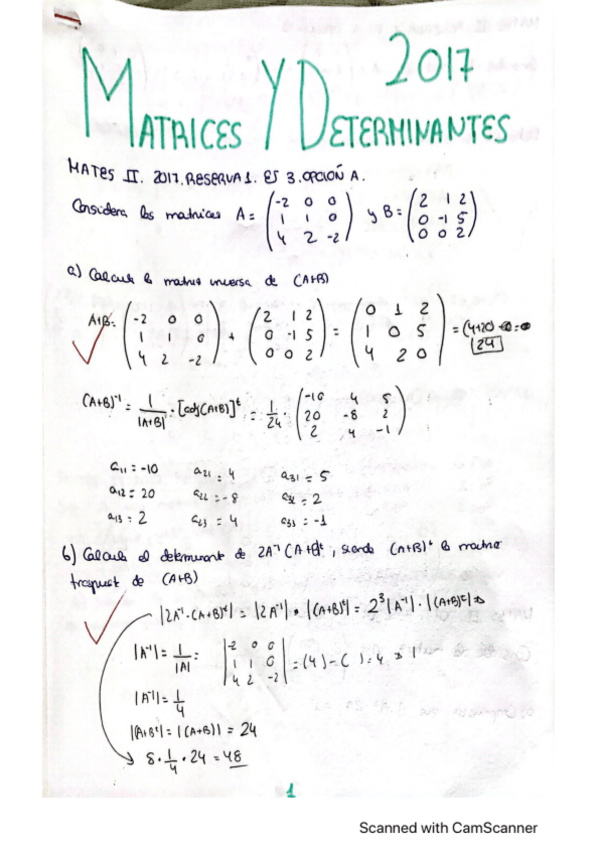 MATRICES Y DETERMINANTES 2017
MATES II. 2017. RESERVA 1. EJ 3. OPCIÓN A.
Considera las matrices A = (-2 0 0; 1 1 0; 4 2 -2) y B = (2 1 2; 0 -1 5; 0 0 2)
a) Calcula la matriz inversa de (A+B)
A+B = (-2 0 0; 1 1 0; 4 2 -2) + (2 1 2; 0 -1 5; 0 0 2) = (0 1 2; 1 0 5; 4 2 0) = (4+20
24
(A+B)⁻¹ = 1/|A+B| · [adj(A+B)]ᵗ = 1/24 · (-10 4 5; 20 -8 2; 2 4 -1)
a₁₁ = -10 a₂₁ = 4 a₃₁ = 5
a₁₂ = 20 a₂₂ = -8 a₃₂ = 2
a₁₃ = 2 a₂₃ = 4 a₃₃ = -1
b) Calcula el determinante de 2A⁻¹(A+B)ᵗ, siendo (A+B)ᵗ la matriz
traspuest de (A+B)
|2A⁻¹·(A+B)ᵗ| = |2A⁻¹| · |(A+B)ᵗ| = 2³|A⁻¹| · |(A+B)ᵗ|
|A⁻¹| = 1/|A| : |-2 0 0; 1 1 0; 4 2 -2| = (4) - ( ) = 4
|A⁻¹| = 1/4
|(A+Bᵗ| = |(A+B)| = 24
8 · 1/4 · 24 = 48
1
Scanned with CamScanner